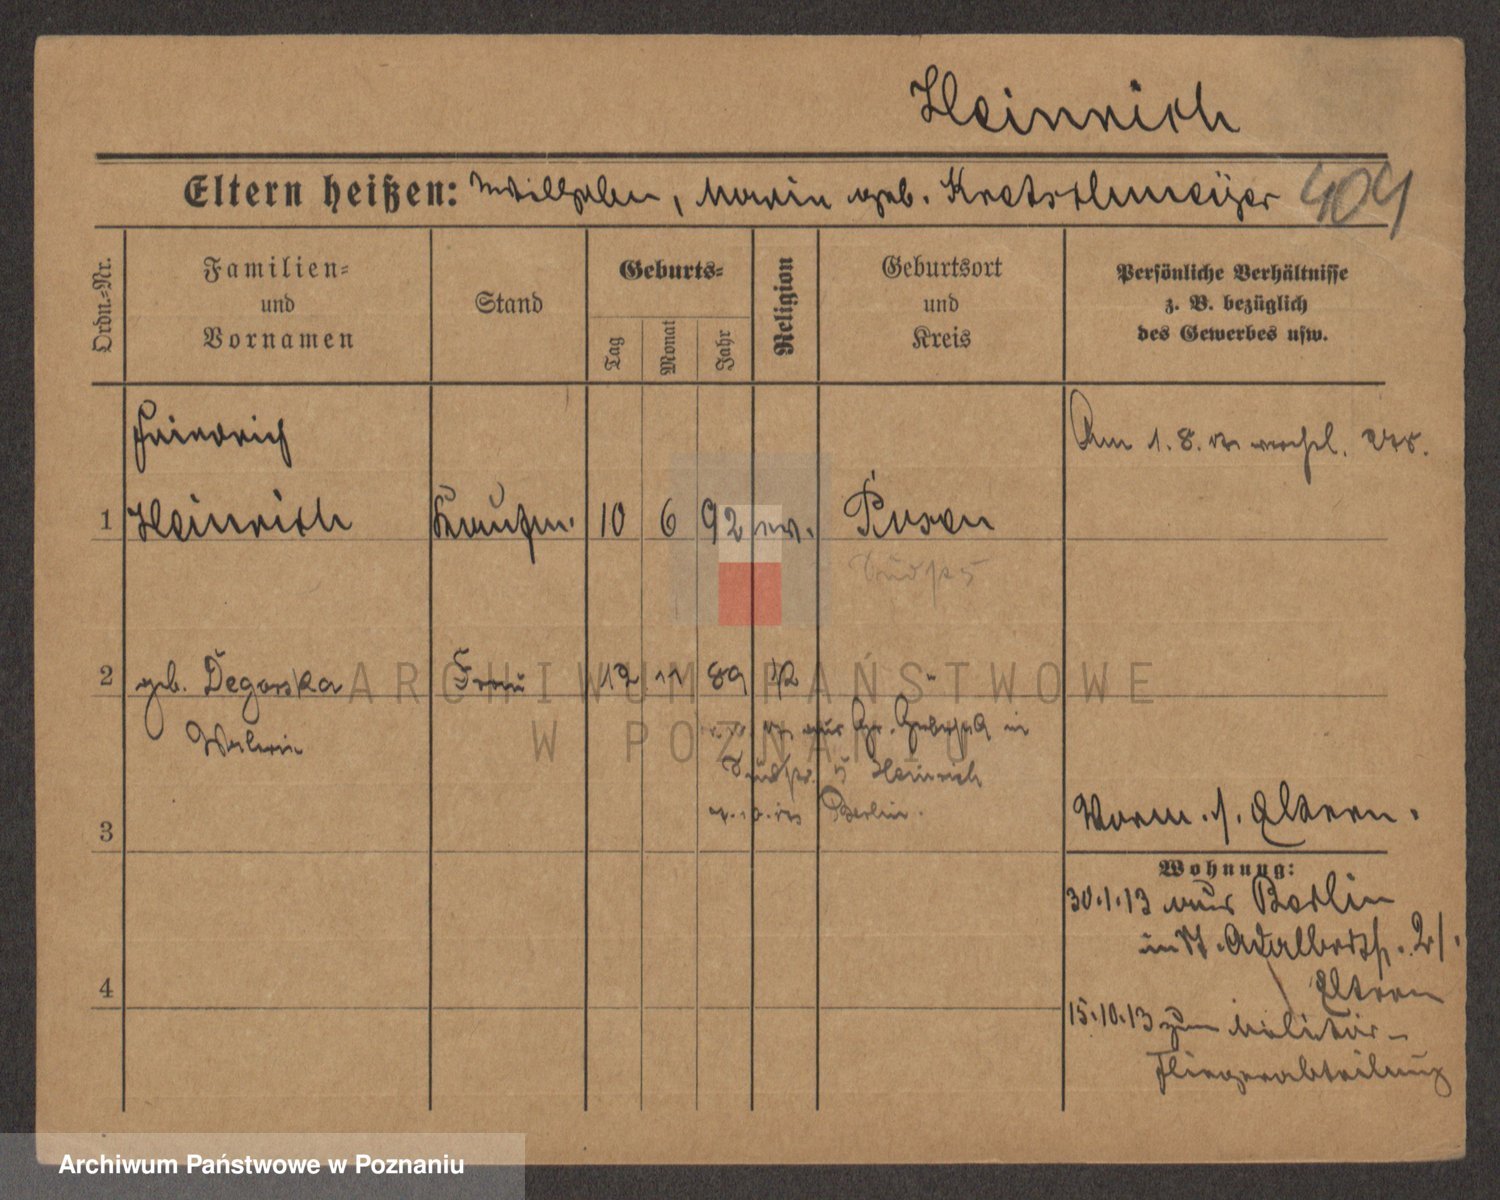 Heinrich
Eltern heißen: Wilhelm, Maria geb. Kretschmeyer 404
Ordn.=Nr.
Familien=
und
Vornamen
Stand
Geburts=
Tag
Monat
Jahr
Religion
Geburtsort
und
Kreis
Persönliche Verhältnisse
z. B. bezüglich
des Gewerbes usw.
Friedrich
Am 1. 8.
1 Heinrich Kaufm. 10 6 92 ev. Posen
2 geb. Degorska Frau 12 11 89
ARCHIWUM PAŃSTWOWE
W POZNANIU
in
Heinrich
Berlin.
3
Vorm. s. Eltern.
Wohnung:
30.1.13 aus Berlin
in St. Adalbertstr. 21.
Eltern
4
15.10.13 zum Militär-
Fliegerabteilung
Archiwum Państwowe w Poznaniu